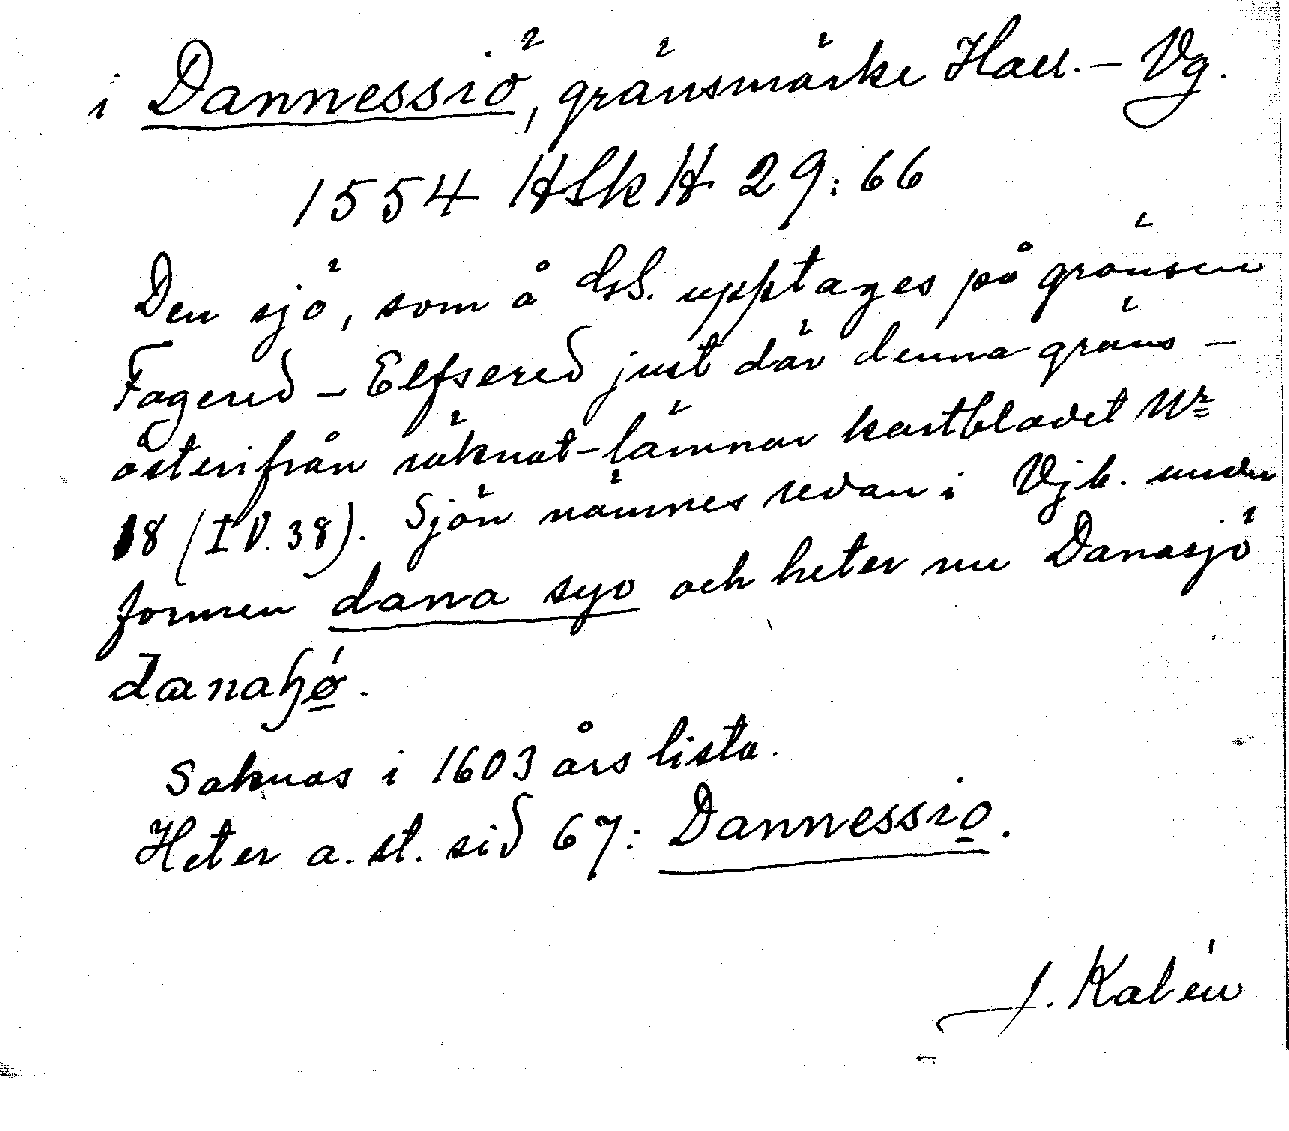 i Dannessiö, gränsmärke Hall. – Vg.
1554 HSkH 29:66
Den sjö, som å GS. upptages på gränsen
Fagered – Elfsered just där denna gräns –
österifrån räknat – lämnar kartbladet Nr
18 (IV.38). Sjön nämnes redan i Vjb. under
formen dana syo och heter nu Danasjö
Saknas i 1603 års lista.
Heter a. st. sid 67: Dannessio.
J. Kalén